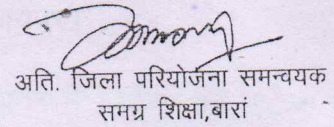 अति. जिला परियोजना समन्वयक
समग्र शिक्षा,बारां